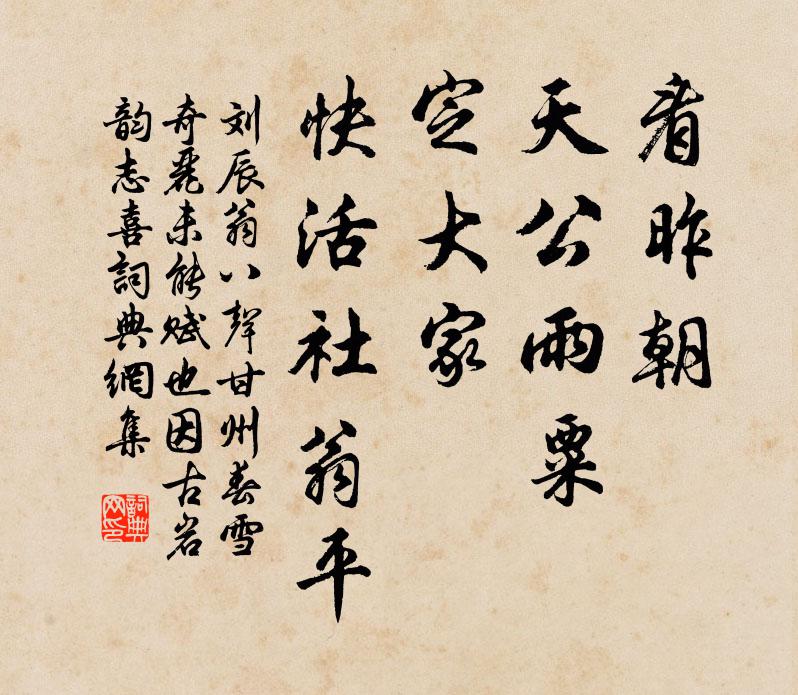 看昨朝
天公雨粟
定大家
快活社翁平
刘辰翁八聲甘州春雪
奇麗未能赋也因古岩
韵志喜詞典網集
詞典网印